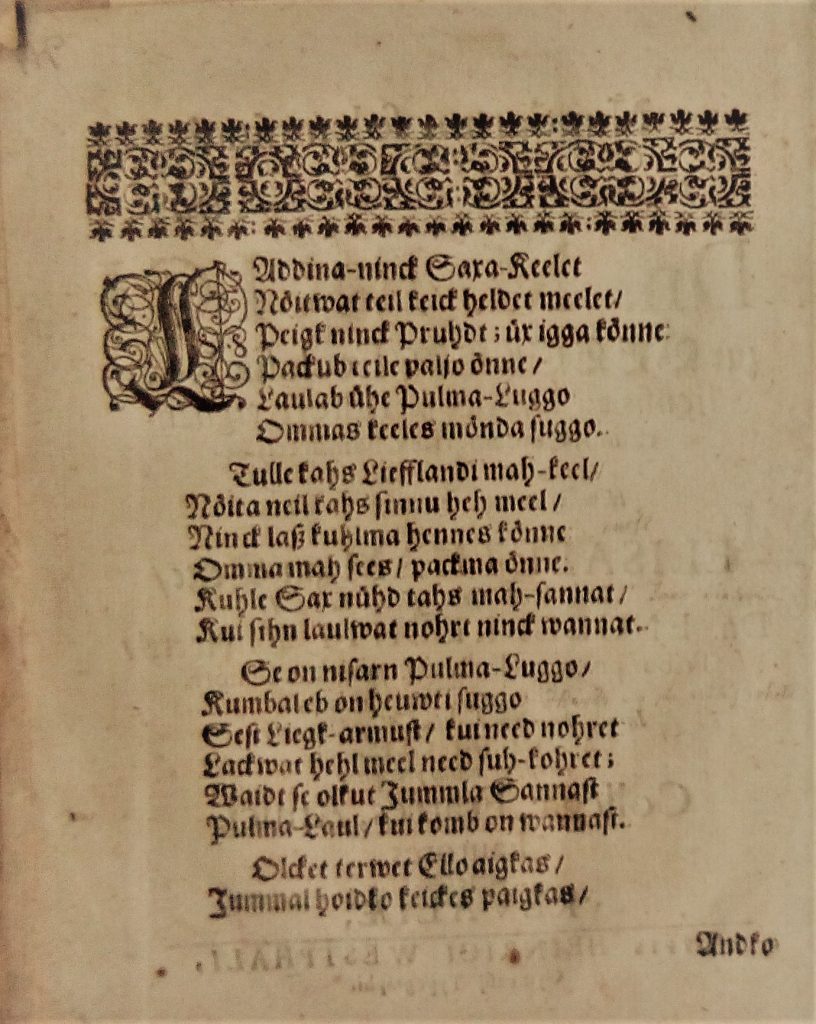 LAddina-ninck Saxa-Keelet
Nöitwat teil keick heldet meelet/
Peigk ninck Pruhdt; üx igga könne
Packub teile paljo önne/
Laulab ühe Pulma-Luggo
Ommas keeles mönda suggo.
Tulle kahs Liefflandi mah-keel/
Nöita neil kahs sinnu heh meel/
Ninck laß kuhlma hennes könne
Omma mah sees/ packma önne.
Kuhle Sax nühd tahs mah-sannat/
Kui sihn laulwat nohrt ninck wannat.
Se on nisarn Pulma-Luggo/
Kumbal eb on heuwti suggo
Sest Liegk-armust/ kui need nohret
Lackwat hehl meel need suh-kohret;
Waidt se olkut Jummla Sannast
Pulma-Laul/ kui komb on wannast.
Olcket terwet Ello aigkas/
Jummal hoidko keickes paigkas/
Andko